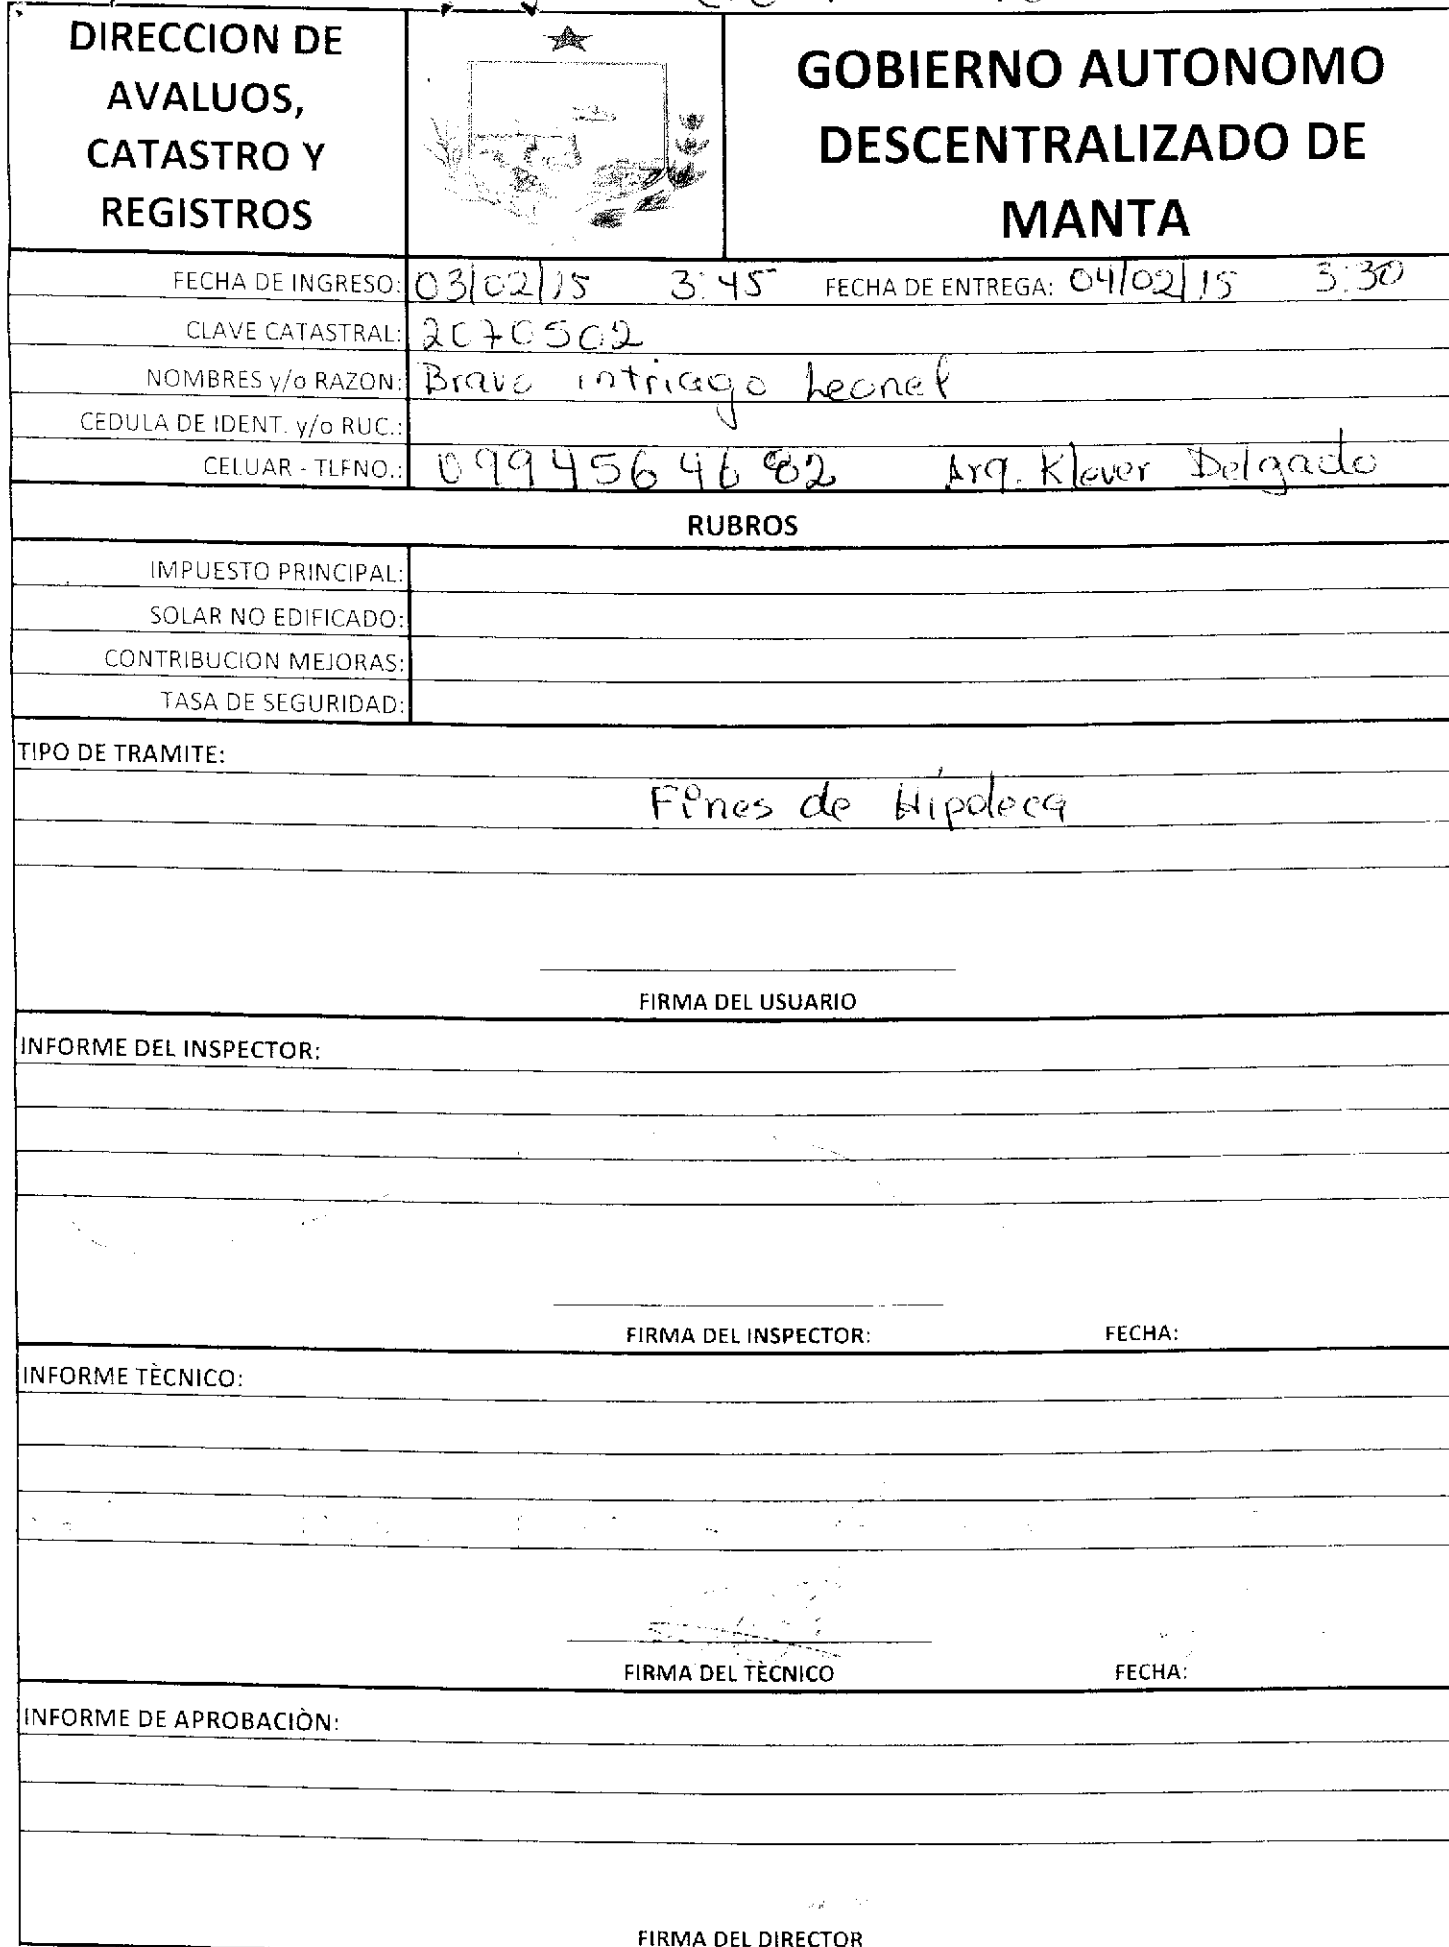 DIRECCION DE
AVALUOS,
CATASTRO Y
REGISTROS
GOBIERNO AUTONOMO
DESCENTRALIZADO DE
MANTA
FECHA DE INGRESO: 03/02/15 3:45 FECHA DE ENTREGA: 04/02/15 3:30
CLAVE CATASTRAL: 2070502
NOMBRES y/o RAZON: Bravo intriago Leonel
CEDULA DE IDENT. y/o RUC.:
CELUAR - TLFNO.: 0994564682 Arq. Klever Delgado
RUBROS
IMPUESTO PRINCIPAL:
SOLAR NO EDIFICADO:
CONTRIBUCION MEJORAS:
TASA DE SEGURIDAD:
TIPO DE TRAMITE:
Fines de Hipoteca
FIRMA DEL USUARIO
INFORME DEL INSPECTOR:
FIRMA DEL INSPECTOR: FECHA:
INFORME TÈCNICO:
FIRMA DEL TÈCNICO FECHA:
INFORME DE APROBACIÒN:
FIRMA DEL DIRECTOR